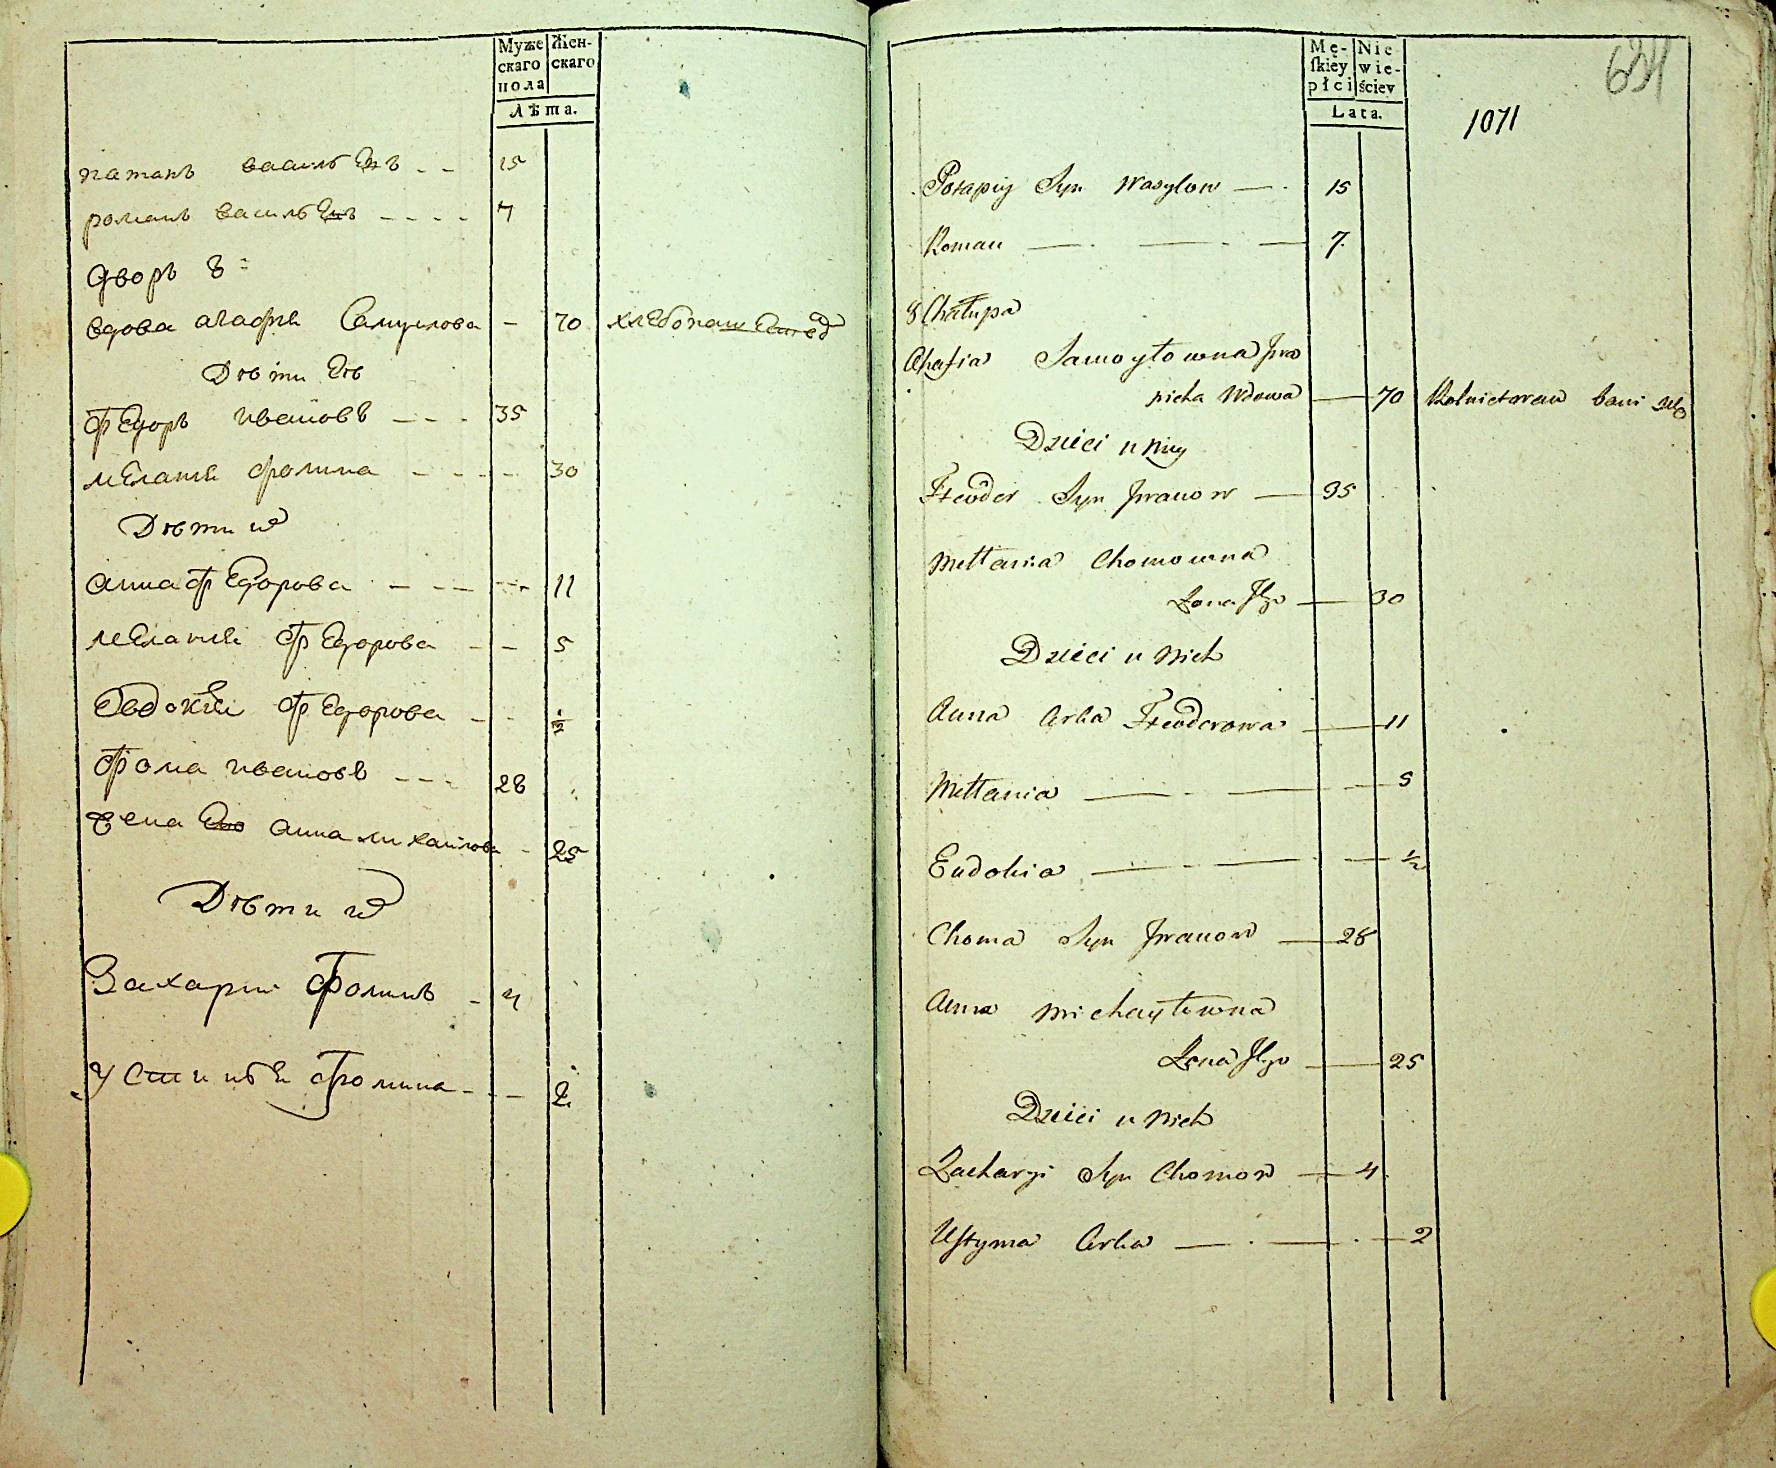 Муже
скаго
пола
Жен-
скаго
Лѣта.
патапъ васильевъ - - 15
романъ васильевъ - - - - 7
дворъ 8
вдова агафия Самуилова - 70 хлебопашествѣ
Дѣти Еѣ
ѳедоръ ивановъ - - - 35
мелания фомина - - - - 30
Дѣти их
анна ѳедорова - - - - - 11
мелания ѳедорова - - 5
Евдокия ѳедорова - - 1/2
фома ивановъ - - - 28
жена Его анна михаилова - 25
Дѣти их
Захарий Фоминъ - 4
Устиния Фомина - - - 2
Mę-
skiey
płci
Nie-
wie-
ściey
Lata.
634
1071
Potapiy Syn Wasylow — 15
Roman — — — 7
8 Chałupa
Ahafia Samoyłowna Iwa
nicha Wdowa — 70 Rolnictwem bawi się
Dzieci u Niey
Fteodor Syn Iwanow — 35
Mełłania Chomowna
Żona Jego — 30
Dzieci u Nich
Anna Corka Fteodorowa — 11
Mełłania — — — 5
Eudokia — — — 1/2
Choma Syn Iwanow — 28
Anna Michayłowna
Żona Jego — 25
Dzieci u Nich
Zacharyi Syn Chomow — 4
Ustyma Corka — — — 2